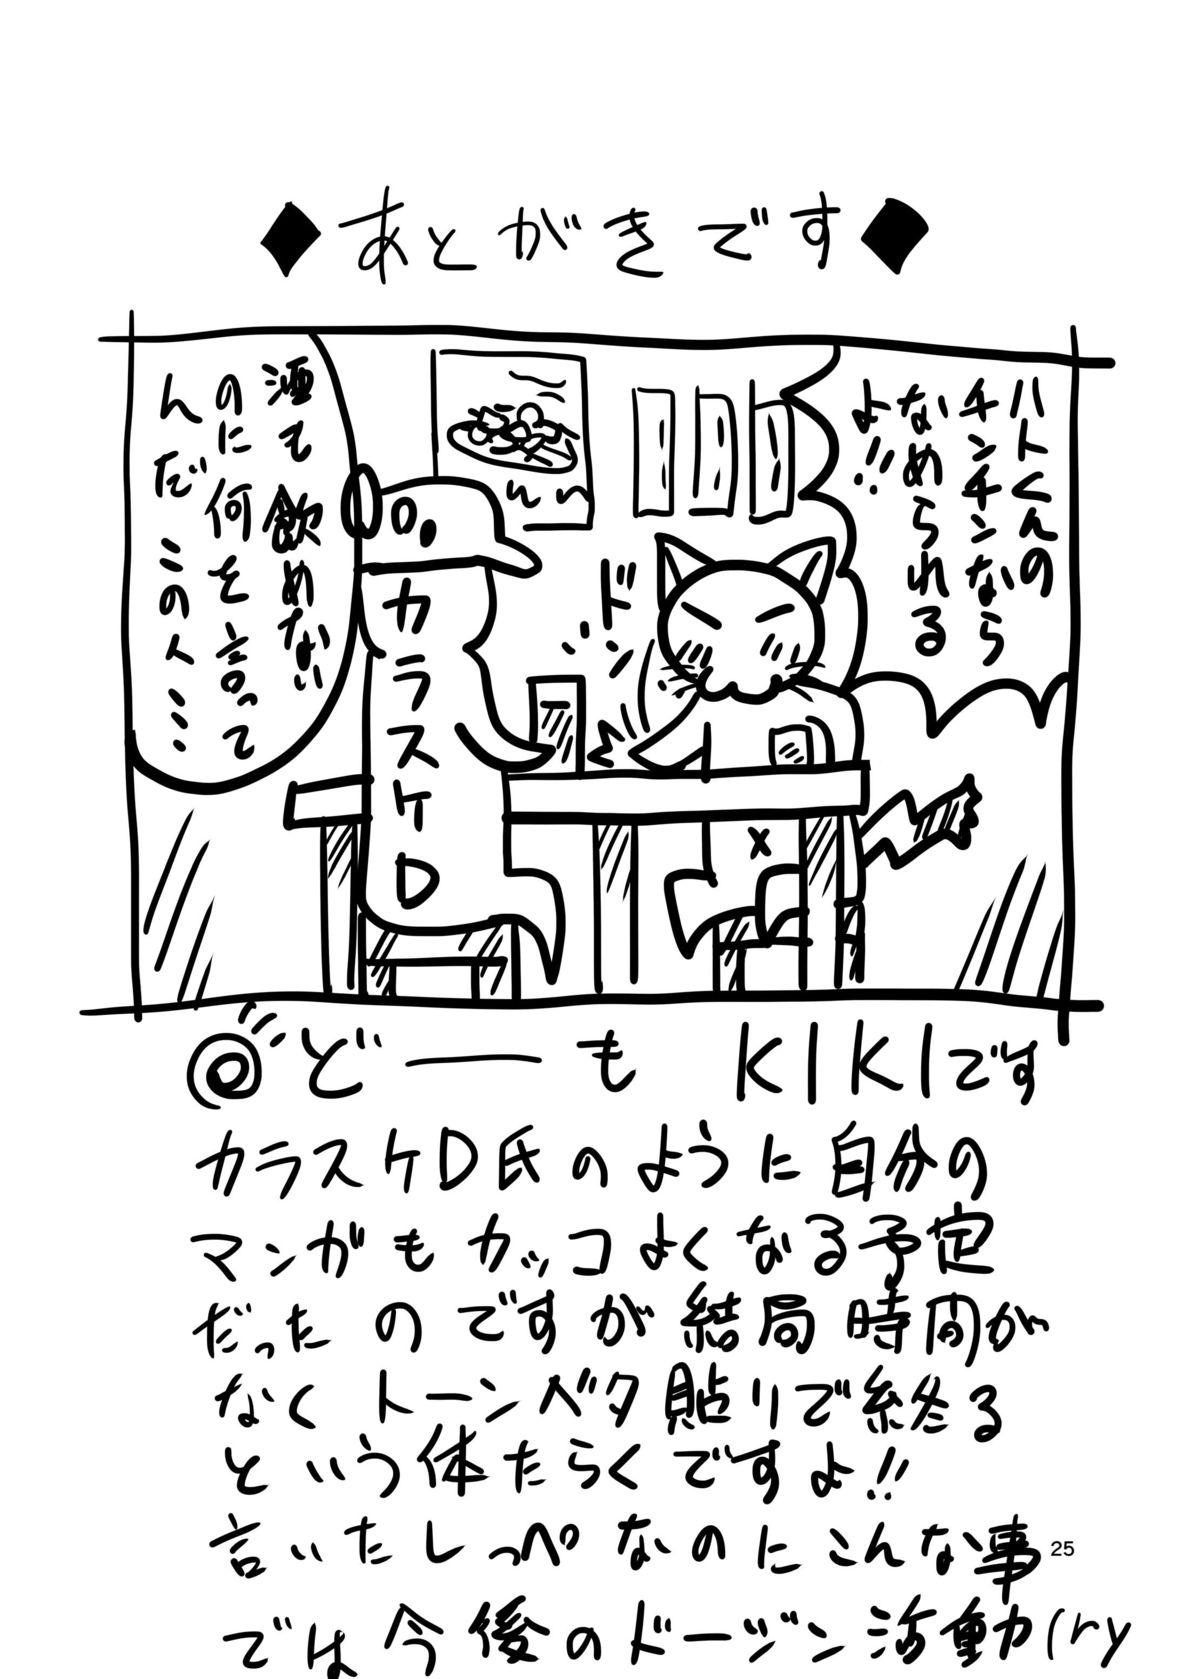 ◆あとがきです◆
ハトくんの
チンチンなら
なめられる
よ!!
ドン
酒も飲めない
のに何を言って
んだこの人……
カラスケD
x
◎どーーも KIKIです
カラスケD氏のように自分の
マンガもカッコよくなる予定
だったのですが結局時間が
なくトーンベタ貼りで終る
という体たらくですよ!!
言いだしっぺなのにこんな事
では今後のドージン活動(ry
25